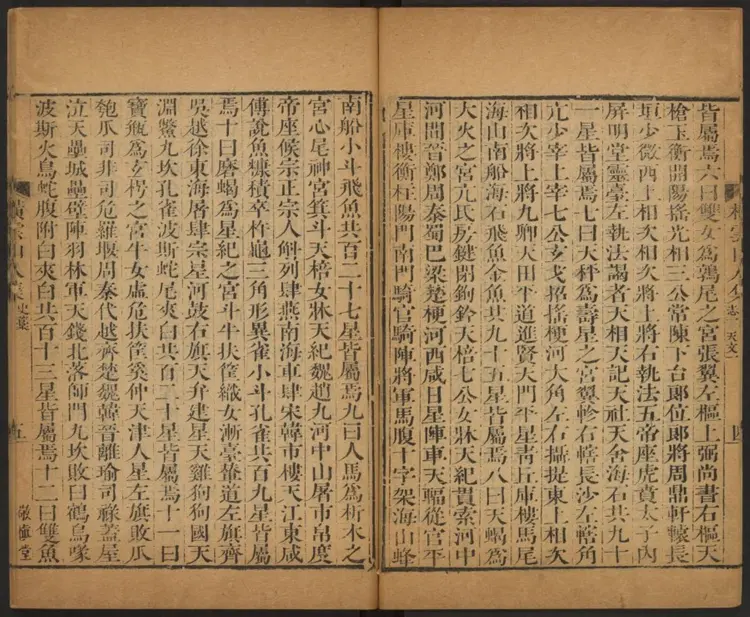 皆屬焉六曰雙女爲鶉尾之宮張翼左樞上弼尚書右樞天
槍玉衡開陽搖光相三公常陳下台郎位郎將周鼎軒轅長
垣少微西上相次相次將上將右執法五帝座虎賁太子內
屏明堂靈臺左執法謁者天相天記天社天舍海石共九十
一星皆屬焉七曰天秤爲壽星之宮翼軫右轄長沙左轄角
亢少宰上宰七公玄戈招搖梗河大角左右攝提東上相次
相次將上將九卿天田平道進賢天門平星靑丘庫樓馬尾
海山南船海石飛魚金魚共九十五星皆屬焉八曰天蝎爲
大火之宮亢氐房鍵閉鉤鈐天棓七公女牀天紀貫索河中
河間晉鄭周秦蜀巴梁楚梗河西咸日星陣車天輻從官平
星庫樓衡柱陽門南門騎官騎陣將軍馬腹十字架海山蜂
南船小斗飛魚共百二十七星皆屬焉九曰人馬爲析木之
宮心尾神宮箕斗天棓女牀天紀魏趙九河中山屠市帛度
帝座候宗正宗人斛列肆燕南海車肆宋韓市樓天江東咸
傅說魚糠積卒杵龜三角形異雀小斗孔雀共百九星皆屬
焉十曰磨蝎爲星紀之宮斗牛扶筐織女漸臺輦道左旗齊
吳越徐東海屠肆宗星河鼓右旗天弁建星天雞狗狗國天
淵鱉九坎孔雀波斯蛇尾夾白共百二十星皆屬焉十一曰
寶甁爲玄枵之宮牛女虛危扶筐奚仲天津人星左旗敗瓜
匏瓜司非司危羅堰周秦代越齊楚魏韓晉離瑜司祿蓋屋
泣天壘城壘壁陣羽林軍天錢北落師門九坎敗臼鶴鳥喙
波斯火鳥蛇腹附白夾白共百十三星皆屬焉十二曰雙魚
五